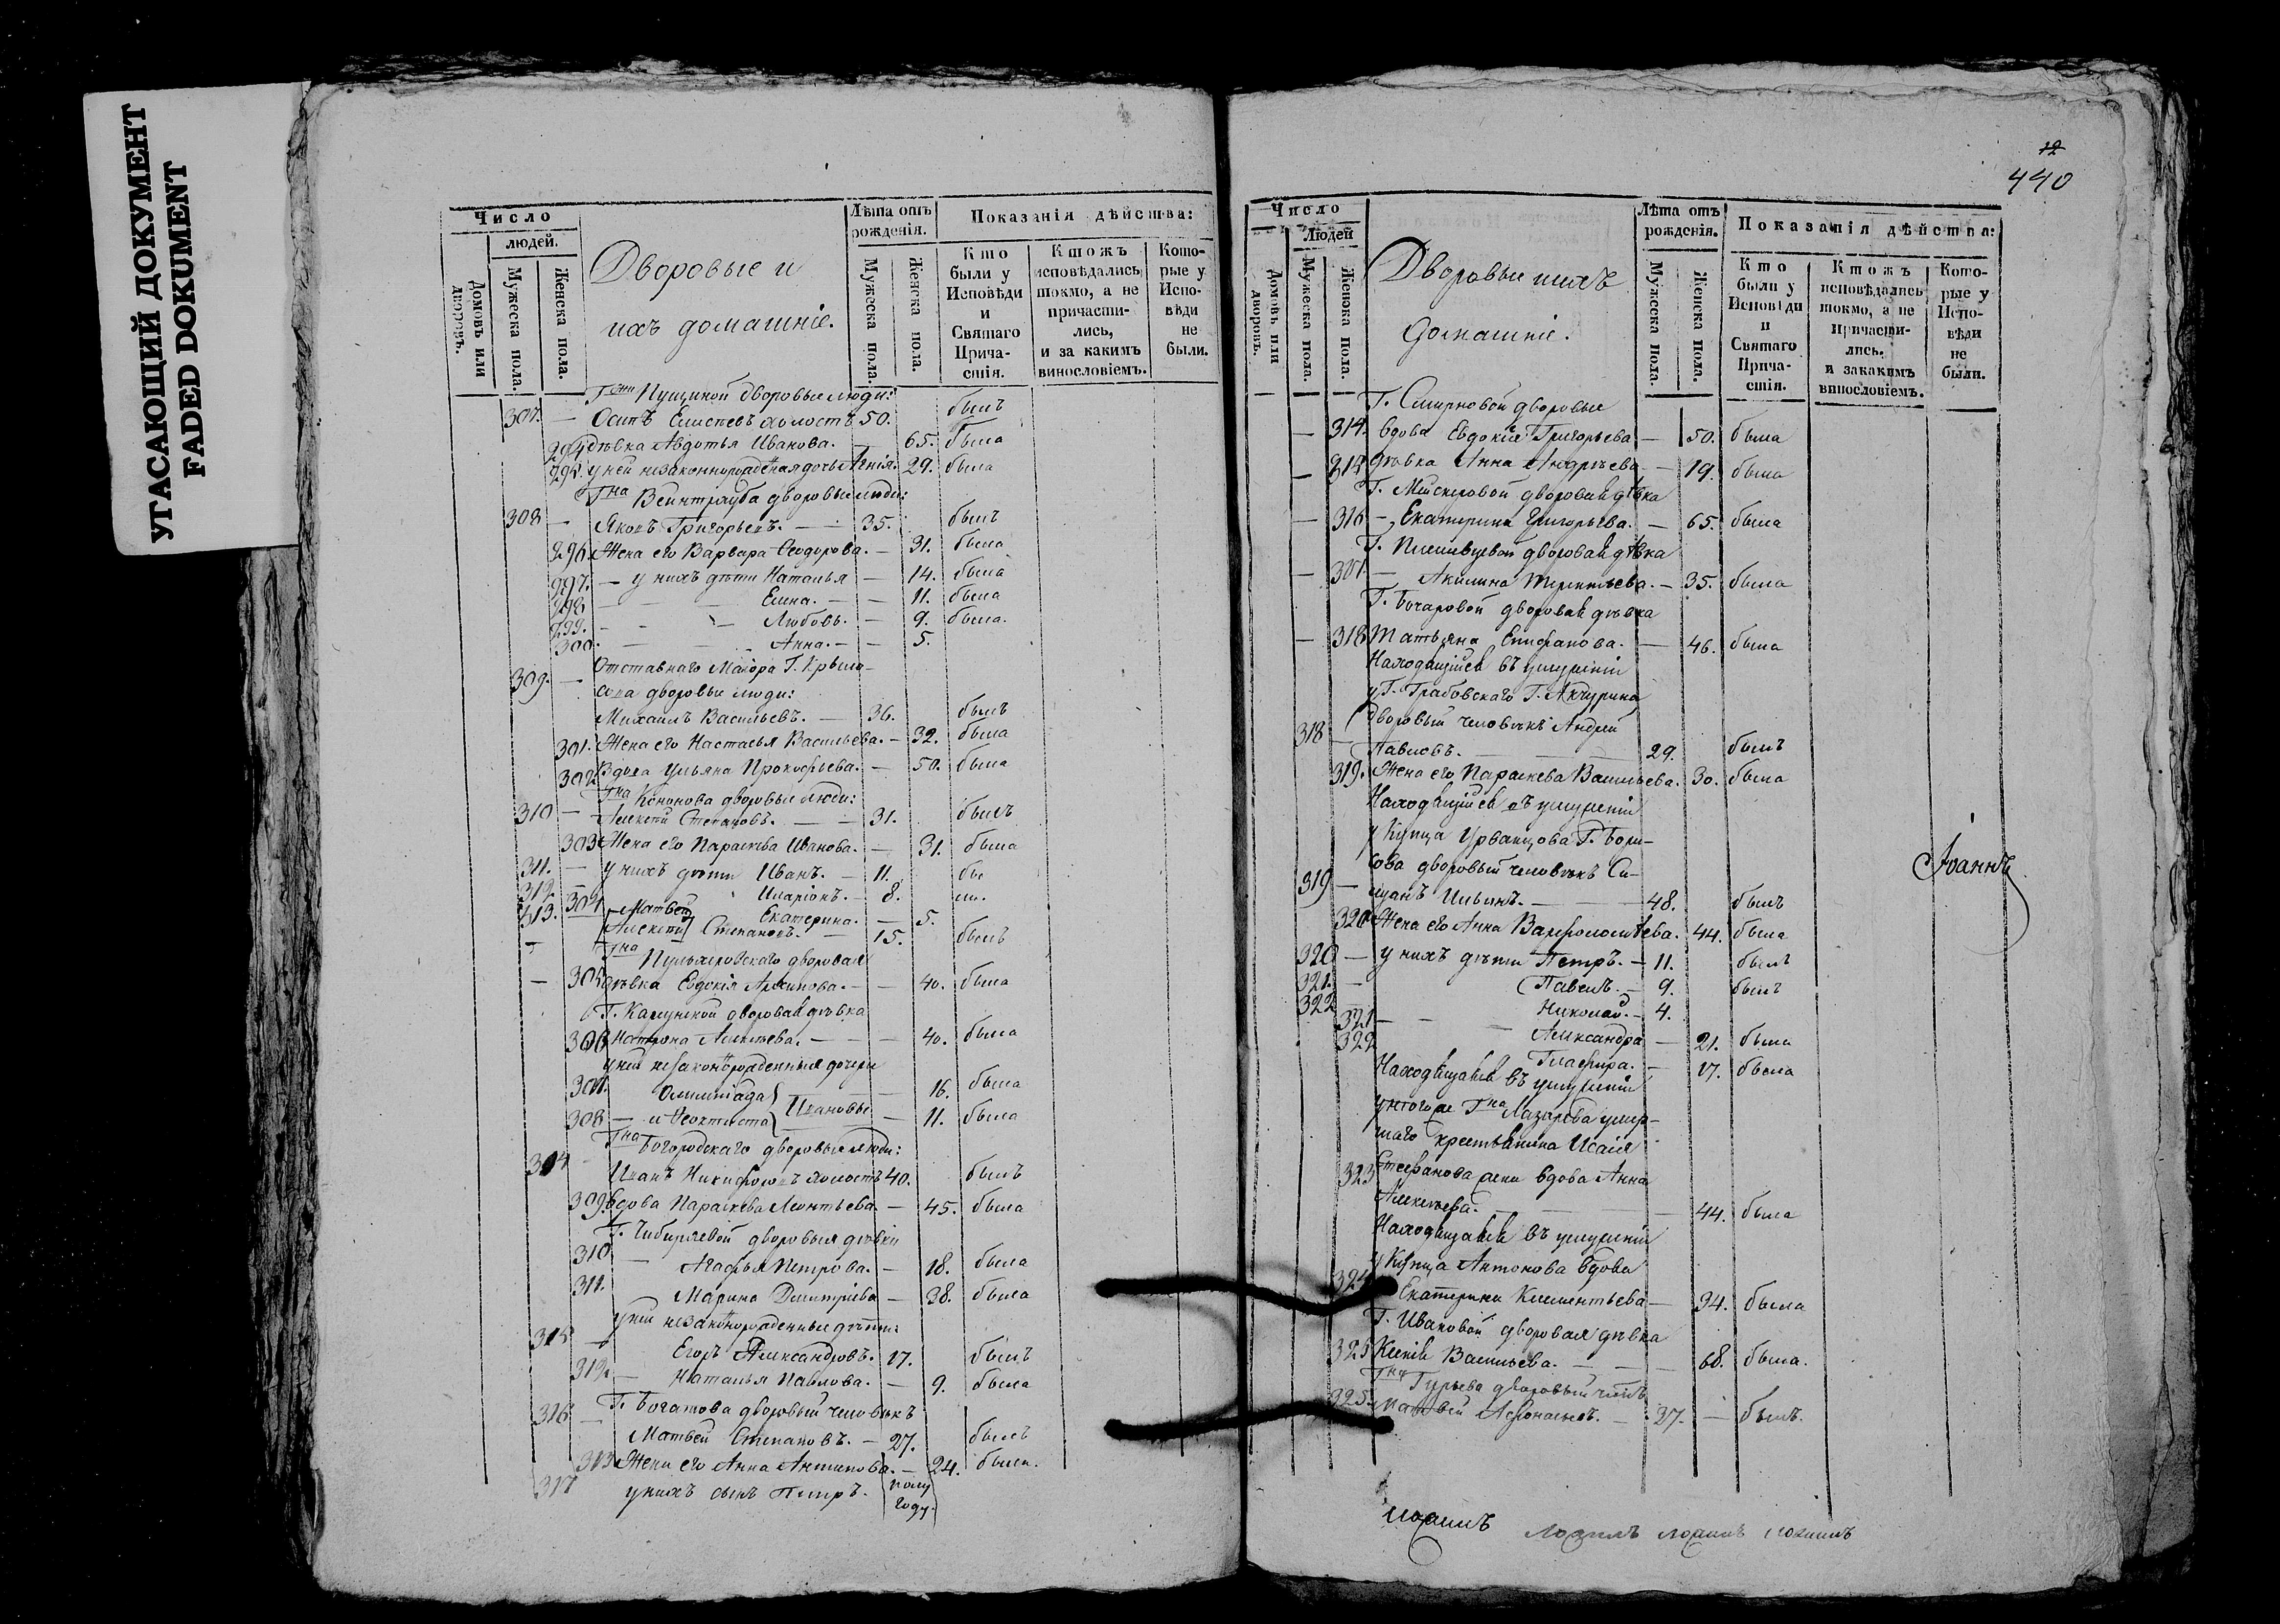 УГАСАЮЩИЙ ДОКУМЕНТ
FADED DOKUMENT
Число
людей.
Домовъ или дворовъ.
Мужеска пола.
Женска пола.
Дворовые и
ихъ домашніе.
Лѣта отъ рожденія.
Мужеска пола.
Женска пола.
Показанія дѣйства:
Кто были у Исповѣди и Святаго Прича-стія.
Ктожъ исповѣдались токмо, а не причасти-лись, и за какимъ винословіемъ.
Кото-рые у Испо-вѣди не были.
Гжи Пущиной дворовые люди:
307. — Осипъ Елисеевъ холостъ 50. былъ
294 дѣвка Авдотья Иванова. — 65. была
295. у ней незаконнорожденая дочь Агнія. 29. была
Гна Веинтрауба дворовые люди:
308 — Яковъ Григорьевъ. — 35. былъ
296 Жена его Варвара Феодорова. — 31. была
297. — у нихъ дѣти Наталья — 14. была
298 — — Елена. — — 11. была
299. — — Любовь. — 9. была.
300. — — Анна. — — 5.
Отставнаго Маіора Г.
309. — дворовые люди:
Михаилъ Васильевъ. — 36. былъ
301. Жена его Настасья Васильева. — 32. была
302 Вдова Ульяна Прокофьева. — 50. была
Гна Кононова дворовые люди:
310 — Алексѣй Степановъ. — — 31. былъ
303 Жена его Параскева Иванова. — 31. была
311. — у нихъ дѣти Иванъ. — 11. бы
312. — Иларіонъ. — 8. ли.
313. 304 Екатерина. — 5.
Матвей
Алексѣй Степановъ. — 15. былъ
Гна дворовая
— 305 дѣвка Евдокія Архипова. — — 40. была
Г. дворовая дѣвка
306 Матрона — — — 40. была
у ней незаконорожденныя дочери
307. Олимпіада — — 16. была
Ивановы
308 — и Феоктиста — 11. была
Гна Богородскаго дворовые люди:
314 — Иванъ Никифоровъ холостъ 40. былъ
309. вдова Параскева Леонтьева. — 45. была
Г. Чибиряевой дворовыя дѣвки
310 — Агафья Петрова. — 18. была
311. Марина Димитріева — 38. была
у ней незаконорожденные дѣти:
315 — Егоръ Александровъ. 17. былъ
312. — Наталья Павлова. — 9. была
Г. Богатова дворовый человѣкъ
316 — Матвей Степановъ. — 27. былъ
313 Жена его Анна Антипова. — 24. была.
317 у нихъ сынъ Петръ. полу
году.
12
440
Число
Людей
Домовъ или дворовъ.
Мужеска пола.
Женска пола.
Дворовые и ихъ
домашніе.
Лѣта отъ рожденія.
Мужеска пола.
Женска пола.
Показанія дѣйства:
Кто были у Исповѣди и Святаго Прича-стія.
Ктожъ исповѣдались токмо, а не Причасти-лись. и закакимъ винословіемъ.
Кото-рые у Испо-вѣди не были.
Г. Смирновой дворовые
— 314. вдова Евдокія Григорьева — 50. была
— 315 дѣвка Анна Андрѣева — 19. была
Г. дворовая дѣвка
— 316 — Екатерина Григорьева. — 65. была
Г. дворовая дѣвка
— 307 — Акилина Терентьева. — 35. была
Г. Бочаровой дворовая дѣвка
— 318 Татьяна Епифанова. — 46. была
Находящійся въ услуженіи
у Г. Грабовскаго Г. Акчурина
дворовый человѣкъ Андрей
318 — Павловъ. — — 29. былъ
319. Жена его Параскева Васильева. 30. была
Находящійся въ услуженіи
у Купца Урванцова Г. Бори-
сова дворовый человѣкъ Си-
319 — Ильинъ. — — 48. былъ
320 Жена его Анна Варфоломѣева. 44. была
320 — у нихъ дѣти Петръ. — 11. былъ
321. — Павелъ. — 9. былъ
322 — Николай. — 4.
321 — — Александра — 21. была
322 Глафира. — 17. была
Находящаяся въ услуженіи
у тогоже Гна Лазарева умер-
шаго крестьянина Исаія
323 Стефанова жена вдова Анна
Алексѣева. — — — 44. была
Находящаяся въ услуженіи
у Купца Антонова вдова
324 Екатерина Климентьева — 34. была
Г. Ивановой дворовая дѣвка
325 Ксенія Васильева. — — 68. была.
Гна Гурьева дворовый
325. Матвей — 37. — былъ.
Іоаннъ